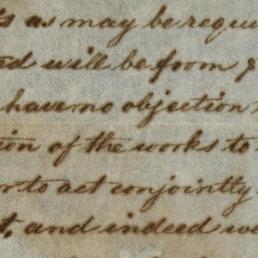 s as may be requi
ed will be from &
have no objection
ion of the works to
r to act conjointly
t, and indeed we